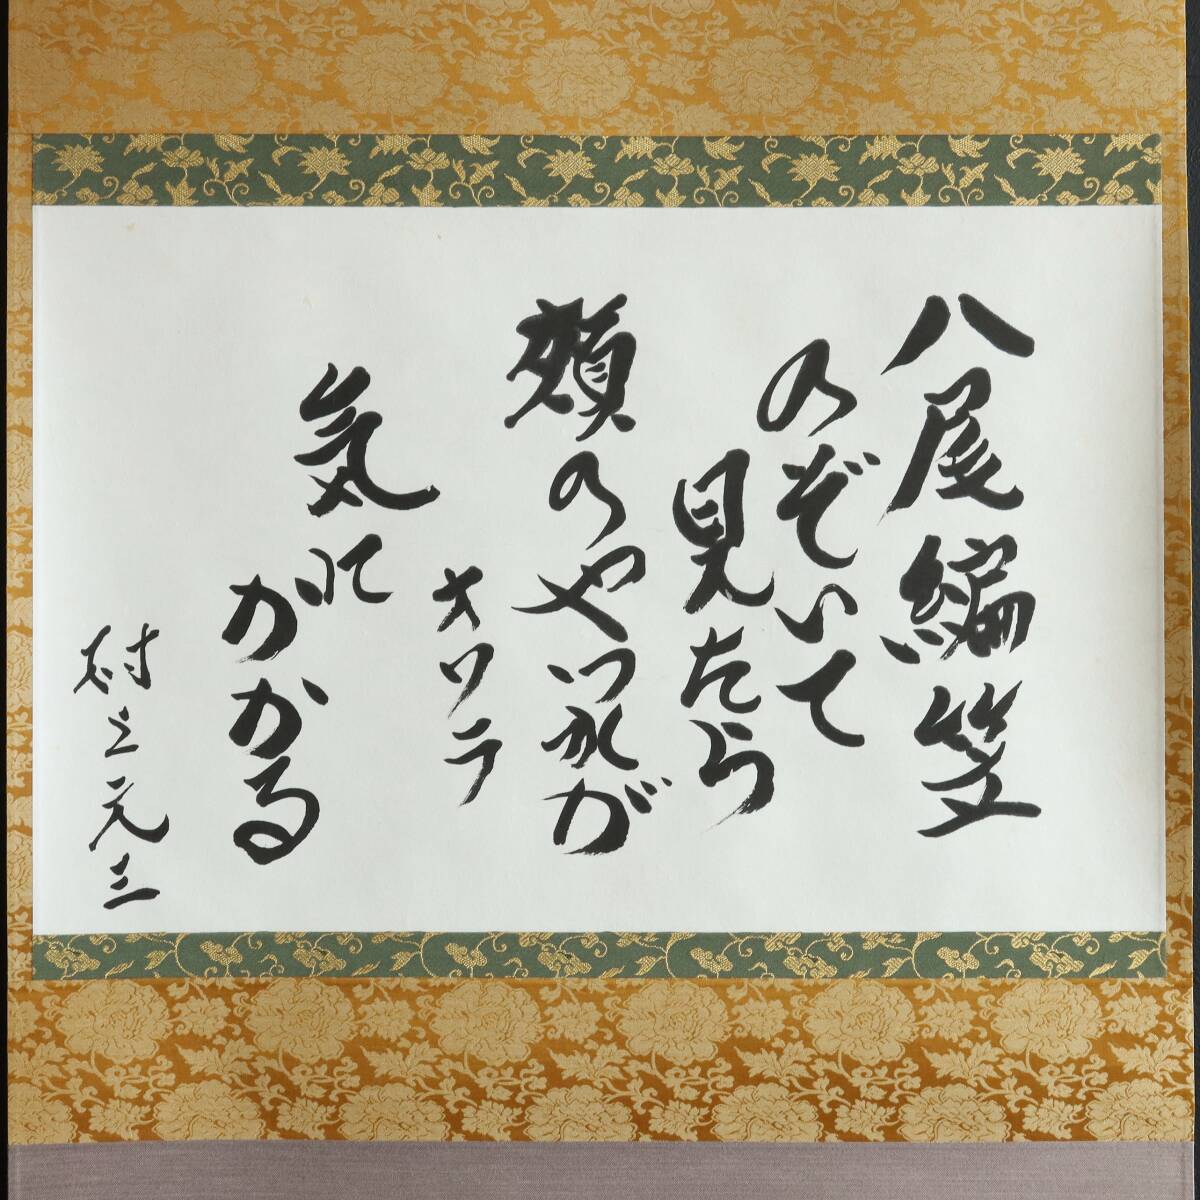 八尾編笠
のぞいて
見たら
頬のやつれが
オワラ
気に
がかかる
村上元三